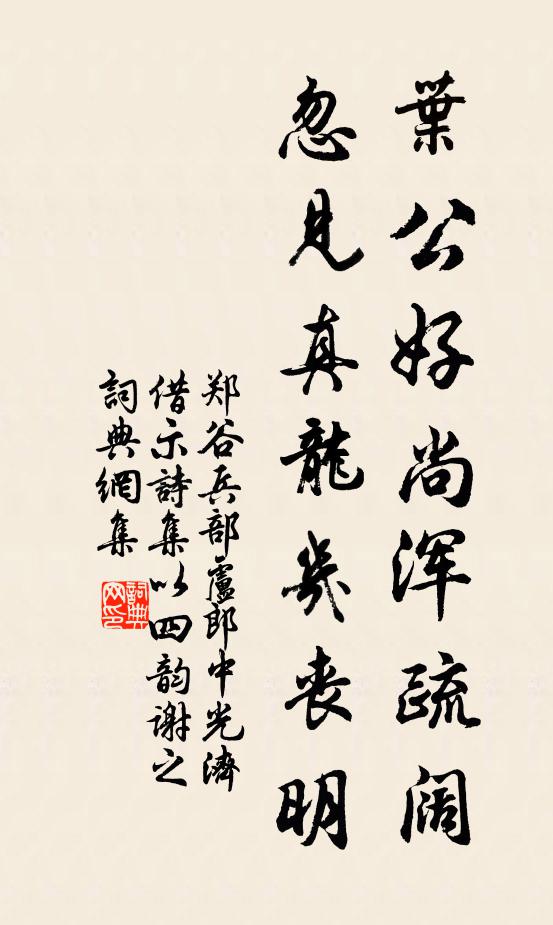 葉公好尚浑疏阔
忽見真龍幾喪明
郑谷兵部盧郎中光濟
借示詩集以四韵谢之
詞典網集
詞典
网印